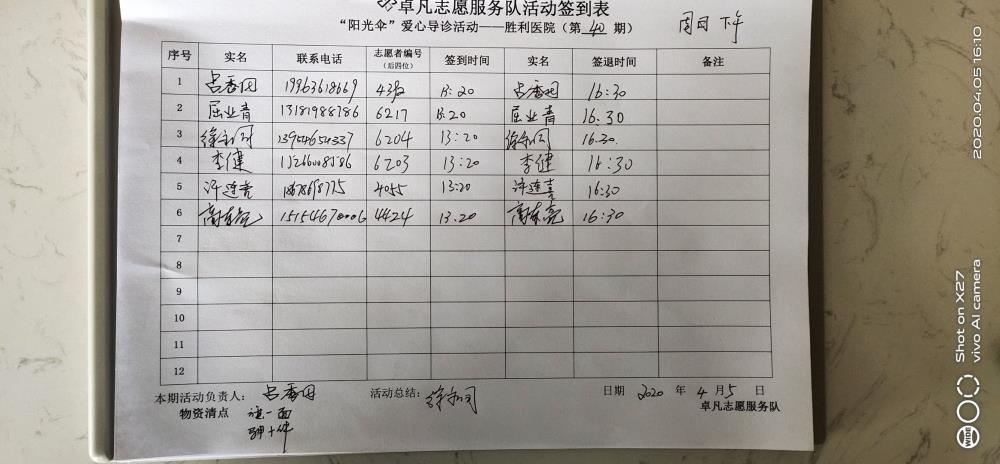 卓凡志愿服务队活动签到表
“阳光伞”爱心导诊活动——胜利医院（第 40 期） 周日 下午
序号 实名 联系电话 志愿者编号（后四位） 签到时间 实名 签退时间 备注
1 吕香田 19963618669 13:20 吕香田 16:30
2 屈业青 13181988786 6217 13:20 屈业青 16.30
3 13954654337 6204 13:20 16.30.
4 李健 6203 13:20 李健 16:30
5 许连喜 4055 13:20 许连喜 16:30
6 15154670006 4424 13.20 16:30
7
8
9
10
11
12
本期活动负责人： 吕香田 活动总结： 日期 2020 年 4 月 5 日
物资清点 旗一面 卓凡志愿服务队
十件
2020.04.05 16:10
Shot on X27
vivo AI camera